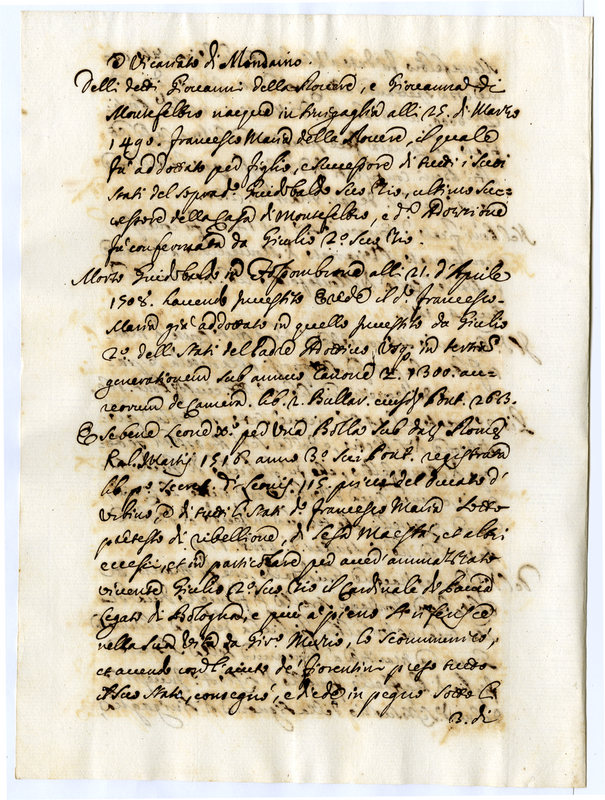 e Vicariato di Mondaino.
Delli detti Giovanni della Rovere, e Giovanna di
Montefeltro nacque in Sinigaglia alli 25. di Marzo
1490. Francesco Maria della Rovere, il quale
fù addottato per figlio, e successore di tutti i suoi
stati del soprad.º Guidobaldo suo Zio, ultimo suc-
cessore della Casa di Montefeltro, e d.ª Adozzione
fù confermata da Giulio 2.º suo Zio.
Morto Guidobaldo in Fossombrone alli 21. d'Aprile
1508. havendo investito erede il d.º Francesco
Maria già addottato in quello investito da Giulio
2.º dell' stati del Padre Adottivo, in tertiã
generationem sub annuo Canone 1300. au-
reorum de Camera. lib. 2. Bullar. Pont. 263.
Et sebene Leone Xº. per una Bolla sub dat. Romę
Kal. Martij 1516. anno 3º. sui Pont. registrata
lib. pº. Secret. 115. privò del Ducato d'
Urbino, e di tutti li stati d.º Francesco Maria sotto
pretesto di ribellione, di lesa Maestà, et altri
eccessi, et in particolare per aver ammazzato
vivente Giulio 2º. suo Zio il Cardinale di Pavia
Legato di Bologna, e più a pieno si riferisce
nella sua Vita da Gir.º Muzio, lo scommunicò,
et avendo con l'aiuto de' Fiorentini preso tutto
il suo Stato, consegnò, e diede in pegno sotto li
3. di